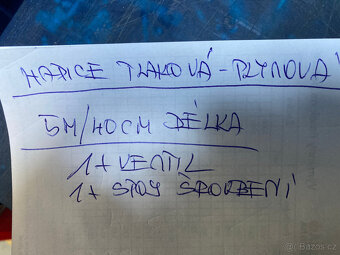 HADICE TLAKOVÁ - PLYNOVÁ
5M/40CM DÉLKA
1+ VENTIL
1+ SPOJ ŠROUBENÍ
Bazos.cz